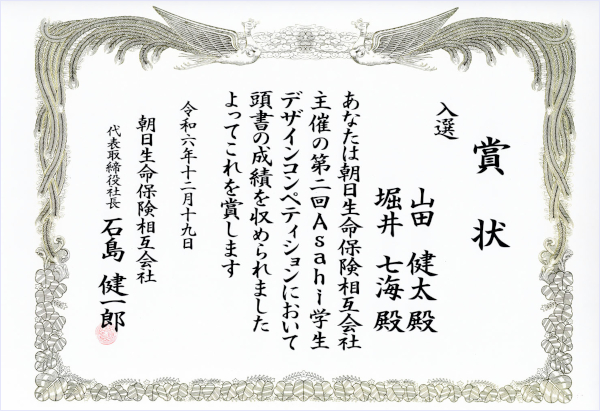 賞状
入選
山田 健太殿
堀井 七海殿
あなたは朝日生命保険相互会社
主催の第二回Asahi学生
デザインコンペティションにおいて
頭書の成績を収められました
よってこれを賞します
令和六年十二月十九日
朝日生命保険相互会社
代表取締役社長 石島 健一郎